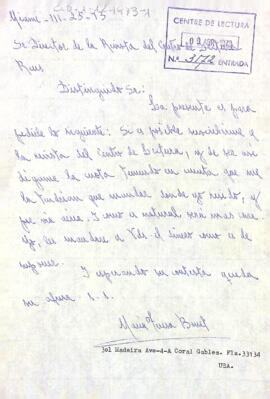 Miami-III-25-75
CENTRE DE LECTURA
N.º 3172 ENTRADA
Sr. Director de la Revista del Centro de Lectura
Reus
Distinguido Sr:
La presente es para
pedirle lo siguiente: Si es posible suscribirme a
la revista del Centro de Lectura, y de ser así
dígame la cuota teniendo en cuenta que me
la tendrían que mandar donde yo resido, y
que me
yo, les mandaré a Vds. el dinero como es de
suponer.
I esperando su contesta queda
su afma. s. s.
Maria Teresa
301 Madeira Ave-4-A Coral Gables. Fla.33134
USA.